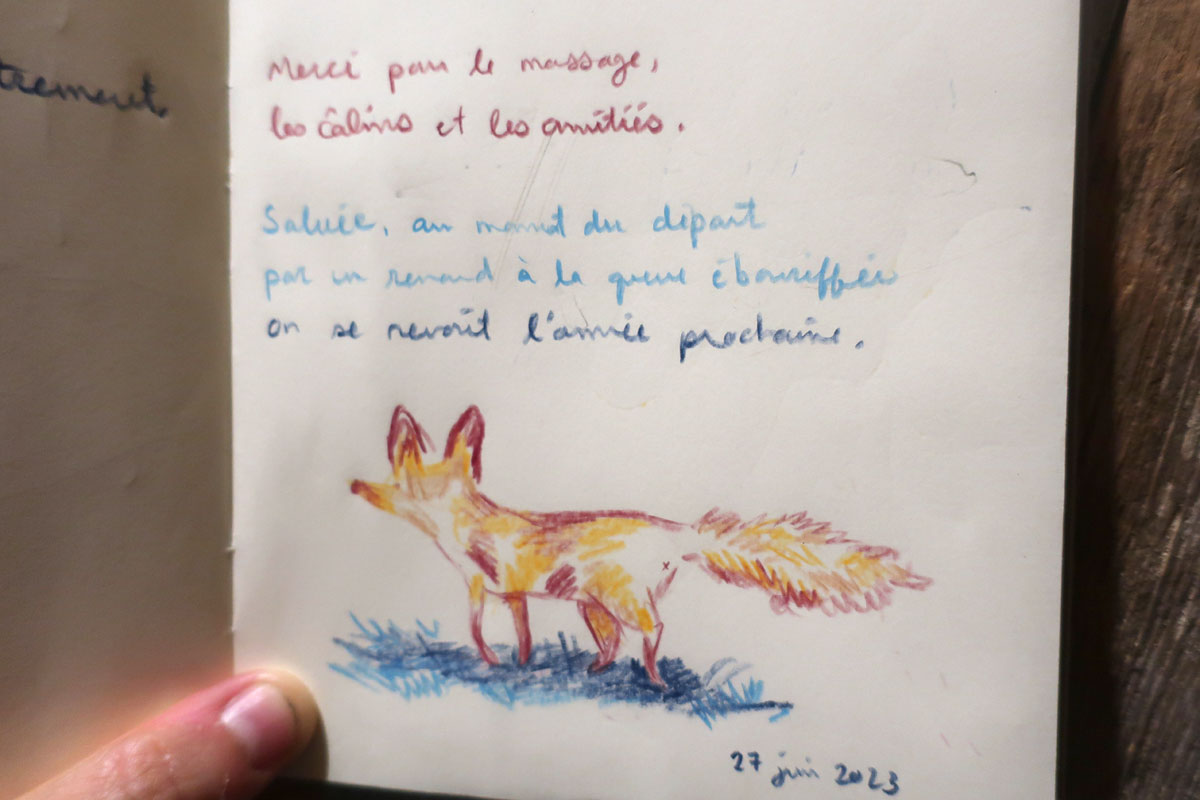 trement.
Merci pour le massage,
les câlins et les amitiés.
Saluée, au moment du départ
par un renard à la queue ébouriffée
on se revoit l'année prochaine.
27 juin 2023